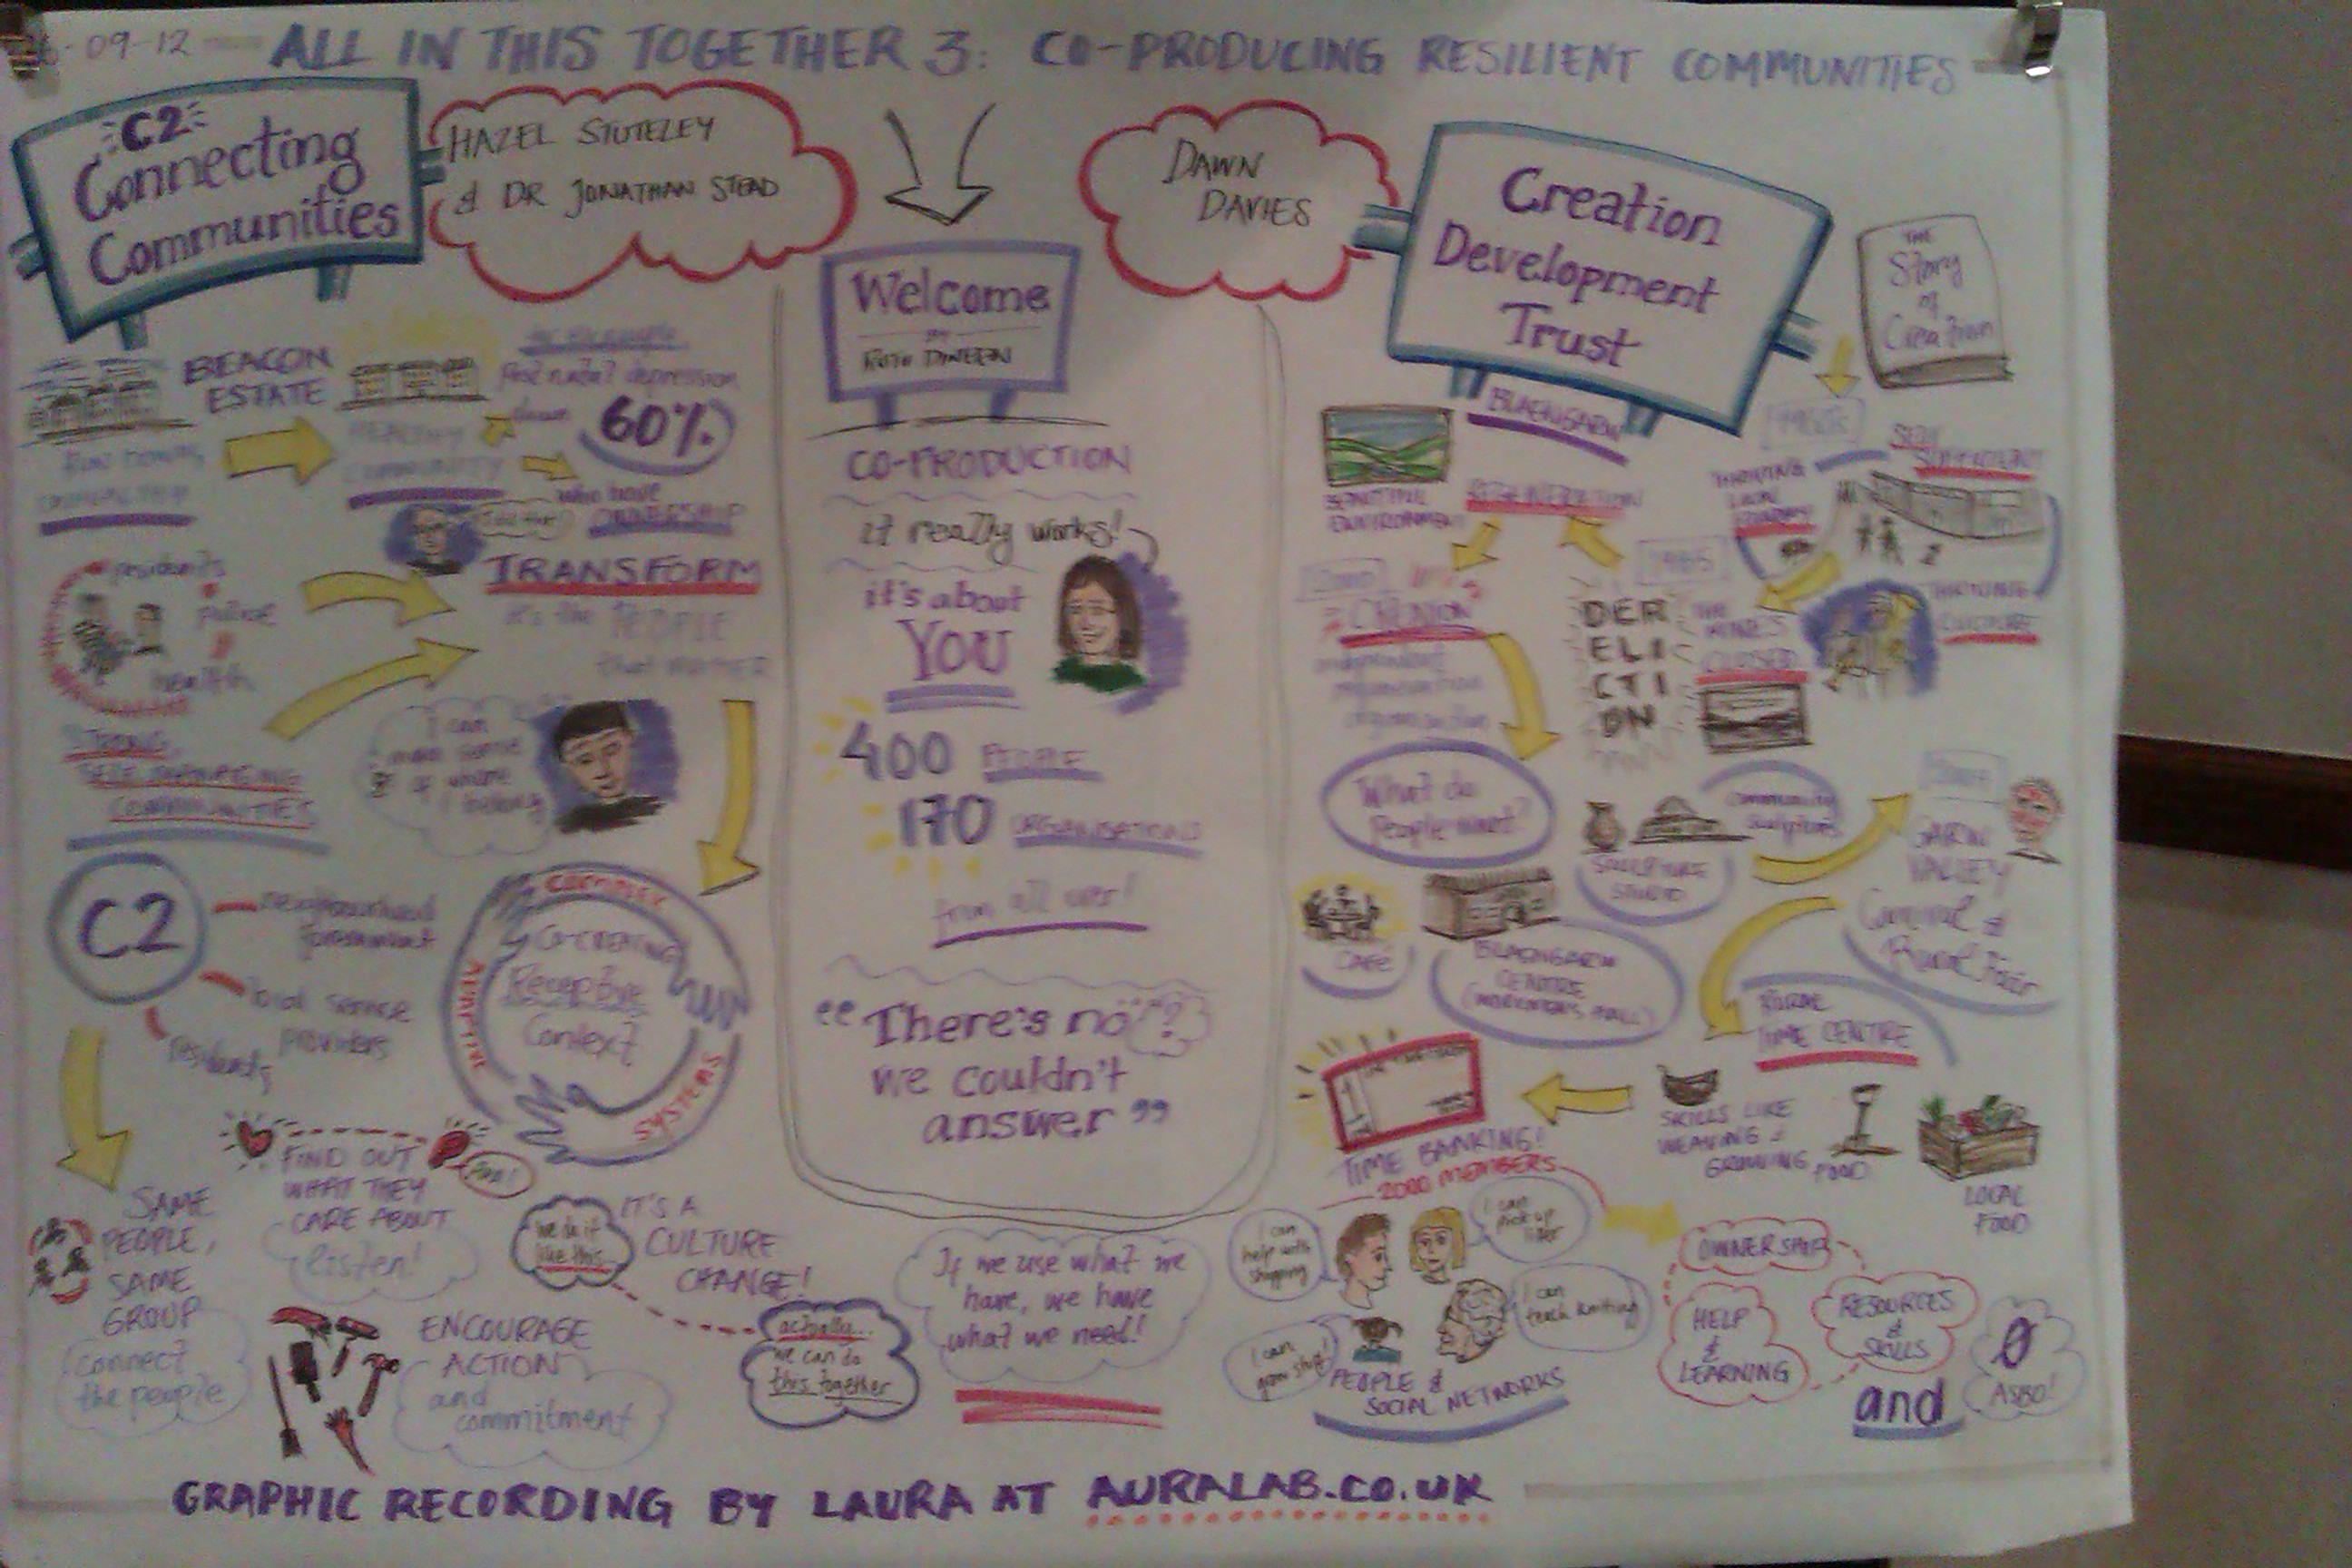 -09-12
ALL IN THIS TOGETHER 3: CO-PRODUCING RESILIENT COMMUNITIES
C2
Connecting
Communities
HAZEL STUTELEY
& DR JONATHAN STEAD
BEACON
ESTATE
HEALTHY
COMMUNITY
post natal depression
down
60%
who have
OWNERSHIP
TRANSFORM
it's the PEOPLE
that MATTER
residents
police
health
STRONG,
SELF MANAGING
COMMUNITIES
I can
make sense
of where
I belong
C2
neighbourhood
local service
providers
residents
COMPLEX
ADAPTIVE
SYSTEMS
CO-CREATING
Receptive
Context
SAME
PEOPLE,
SAME
GROUP
connect
the people
FIND OUT
WHAT THEY
CARE ABOUT
listen!
we do it
like this
IT'S A
CULTURE
CHANGE!
ENCOURAGE
ACTION
and
commitment
actually...
we can do
this together
Welcome
BY
RUTH DINEEN
CO-PRODUCTION
it really works!
it's about
YOU
400 PEOPLE
170 ORGANISATIONS
from all over!
"There's no "?"
we couldn't
answer"
If we use what we
have, we have
what we need!
DAWN
DAVIES
Creation
Development
Trust
THE
Story
of
Creation
BLAENGARW
BEAUTIFUL
ENVIRONMENT
REGENERATION
SELF
SUFFICIENT
THRIVING
LOCAL
ECONOMY
THRIVING
CULTURE
1985
THE
MINES
CLOSED
DER
ELI
CTI
ON
CREATION
independent
organisation
What do
People want?
SCULPTURE
STUDIO
community
sculptures
CAFÉ
BLAENGARW
CENTRE
(WORKMEN'S HALL)
GARW
VALLEY
Carnival &
Rural Fair
RURAL
TIME CENTRE
SKILLS LIKE
WEAVING &
GROWING FOOD
LOCAL
FOOD
TIME BANKING!
2000 MEMBERS
I can
help with
shopping
I can
pick up
litter
I can
teach knitting
I can
grow stuff!
PEOPLE &
SOCIAL NETWORKS
OWNERSHIP
HELP
&
LEARNING
RESOURCES
&
SKILLS
and
0
ASBO!
GRAPHIC RECORDING BY LAURA AT AURALAB.CO.UK